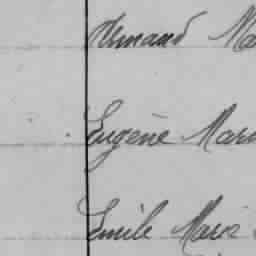 Armand Ma
Eugène Mar
Emile Marie